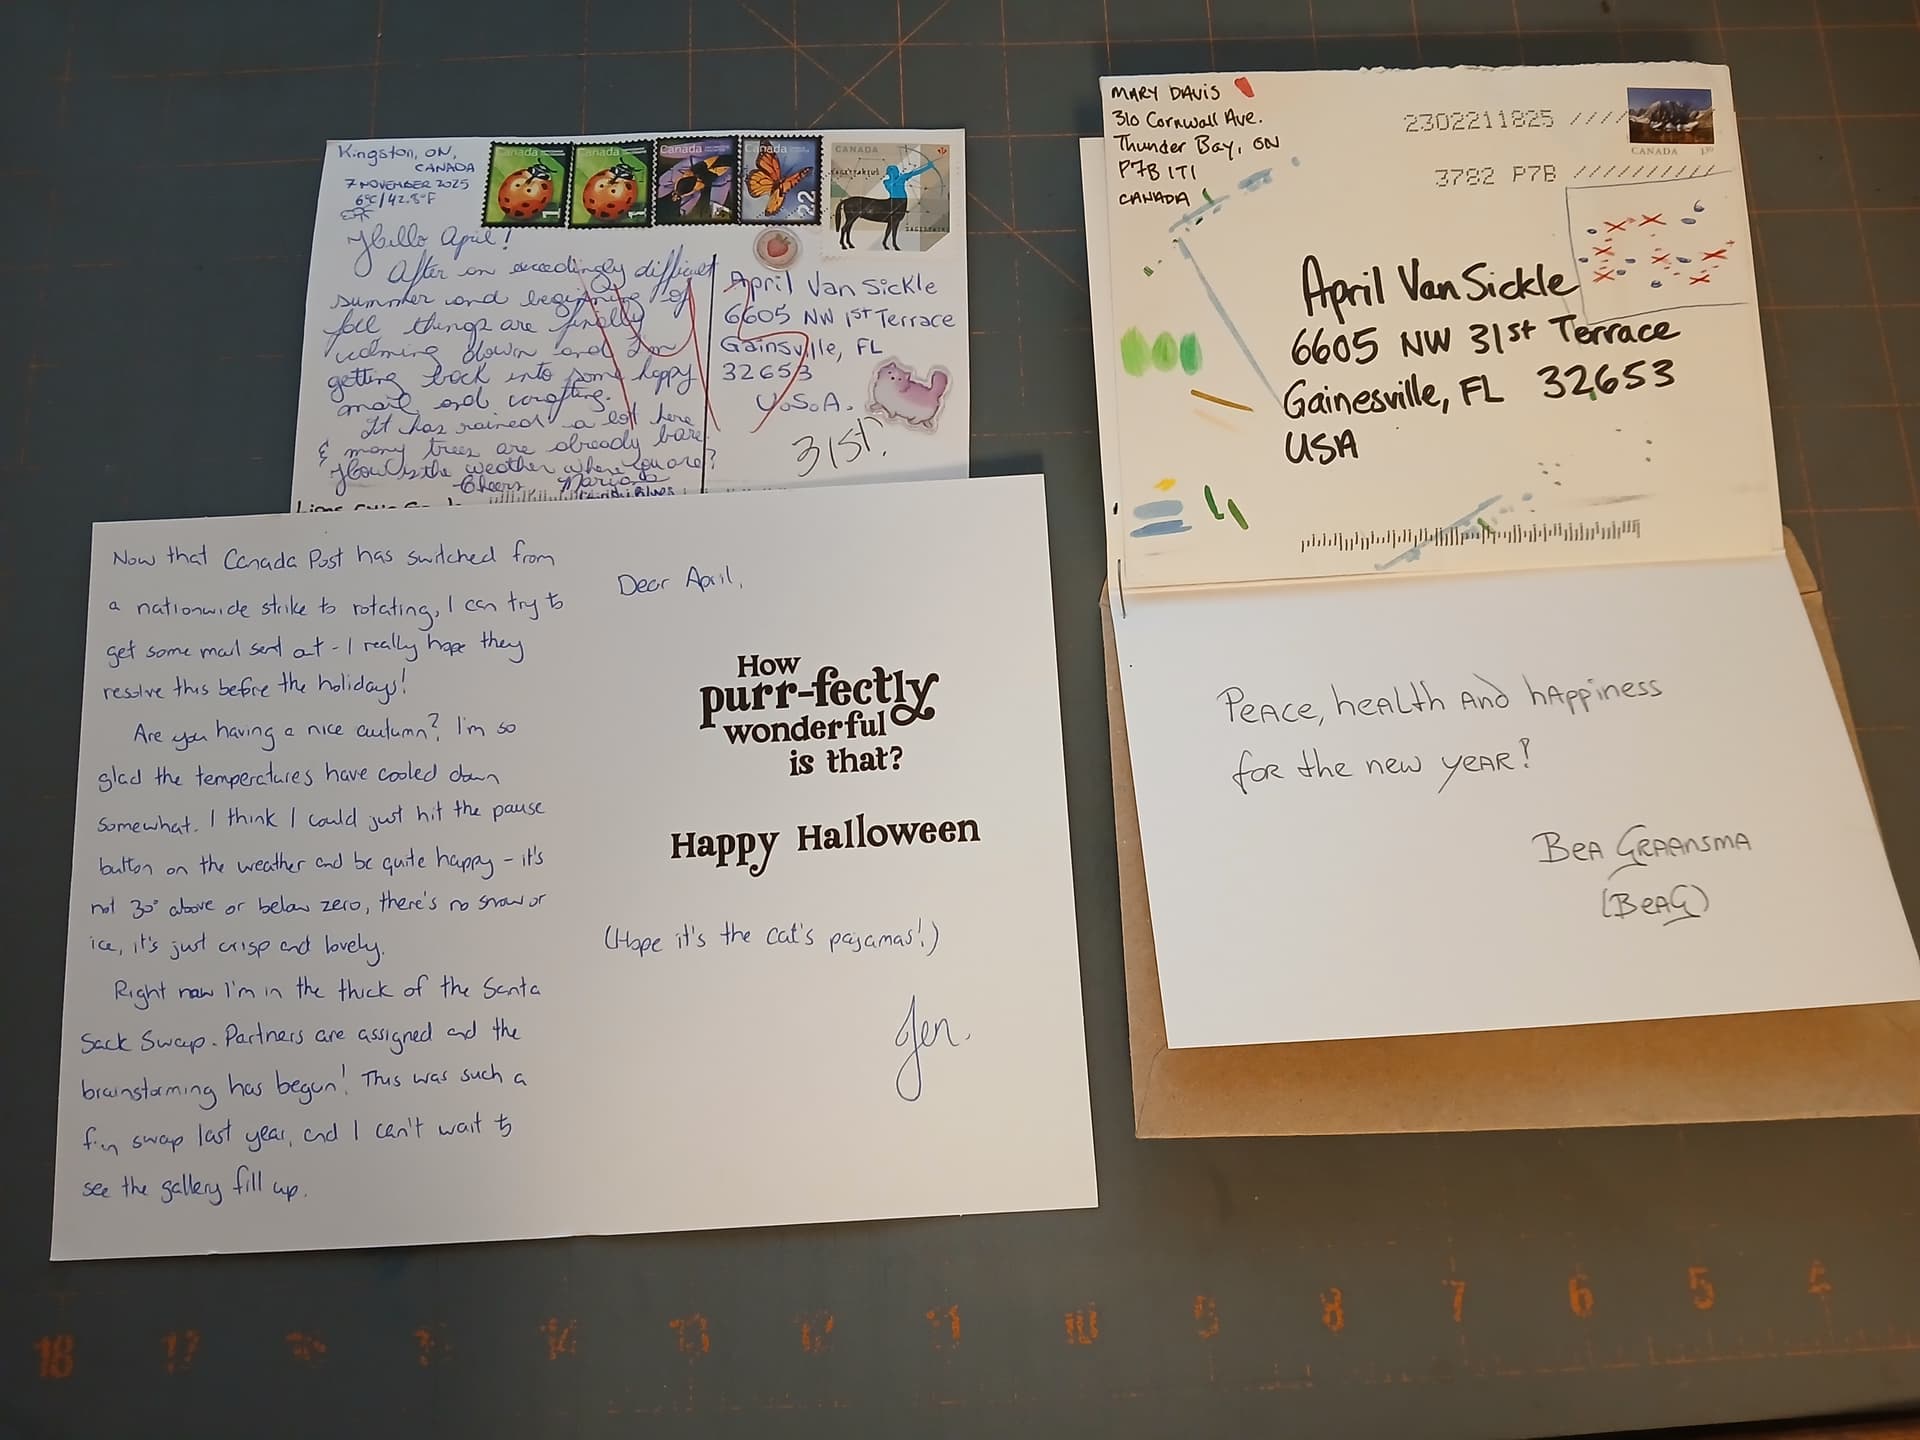 Kingston, ON,
CANADA
7 NOVEMBER 2025
6°C/42.8°F
Hello April!
After an exceedingly difficult
summer and beginning of
fall things are finally
calming down and I'm
getting back into some happy
mail and crafting.
It has rained a lot here
& many trees are already bare.
How is the weather where you are?
Cheers, Mariana
Canada
1
Canada
1
Canada
Canada
22
CANADA
SAGITTARIUS
April Van Sickle
6605 NW 1st Terrace
Gainsville, FL
32653
U.S.A.
31st?
Now that Canada Post has switched from
a nationwide strike to rotating, I can try to
get some mail sent out - I really hope they
resolve this before the holidays!
Are you having a nice autumn? I'm so
glad the temperatures have cooled down
somewhat. I think I could just hit the pause
button on the weather and be quite happy - it's
not 30° above or below zero, there's no snow or
ice, it's just crisp and lovely.
Right now I'm in the thick of the Santa
Sack Swap. Partners are assigned and the
brainstorming has begun! This was such a
fun swap last year, and I can't wait to
see the gallery fill up.
Dear April,
How
purr-fectly
wonderful
is that?
Happy Halloween
(Hope it's the cat's pajamas!)
Jen.
MARY DAVIS
310 Cornwall Ave.
Thunder Bay, ON
P7B 1T1
CANADA
2302211825 /////
3782 P7B //////////
CANADA
April Van Sickle
6605 NW 31st Terrace
Gainesville, FL 32653
USA
Peace, health and happiness
for the new year!
Bea Graansma
(BeaG)
18 17 16 15 14 13 12 11 10 9 8 7 6 5 4